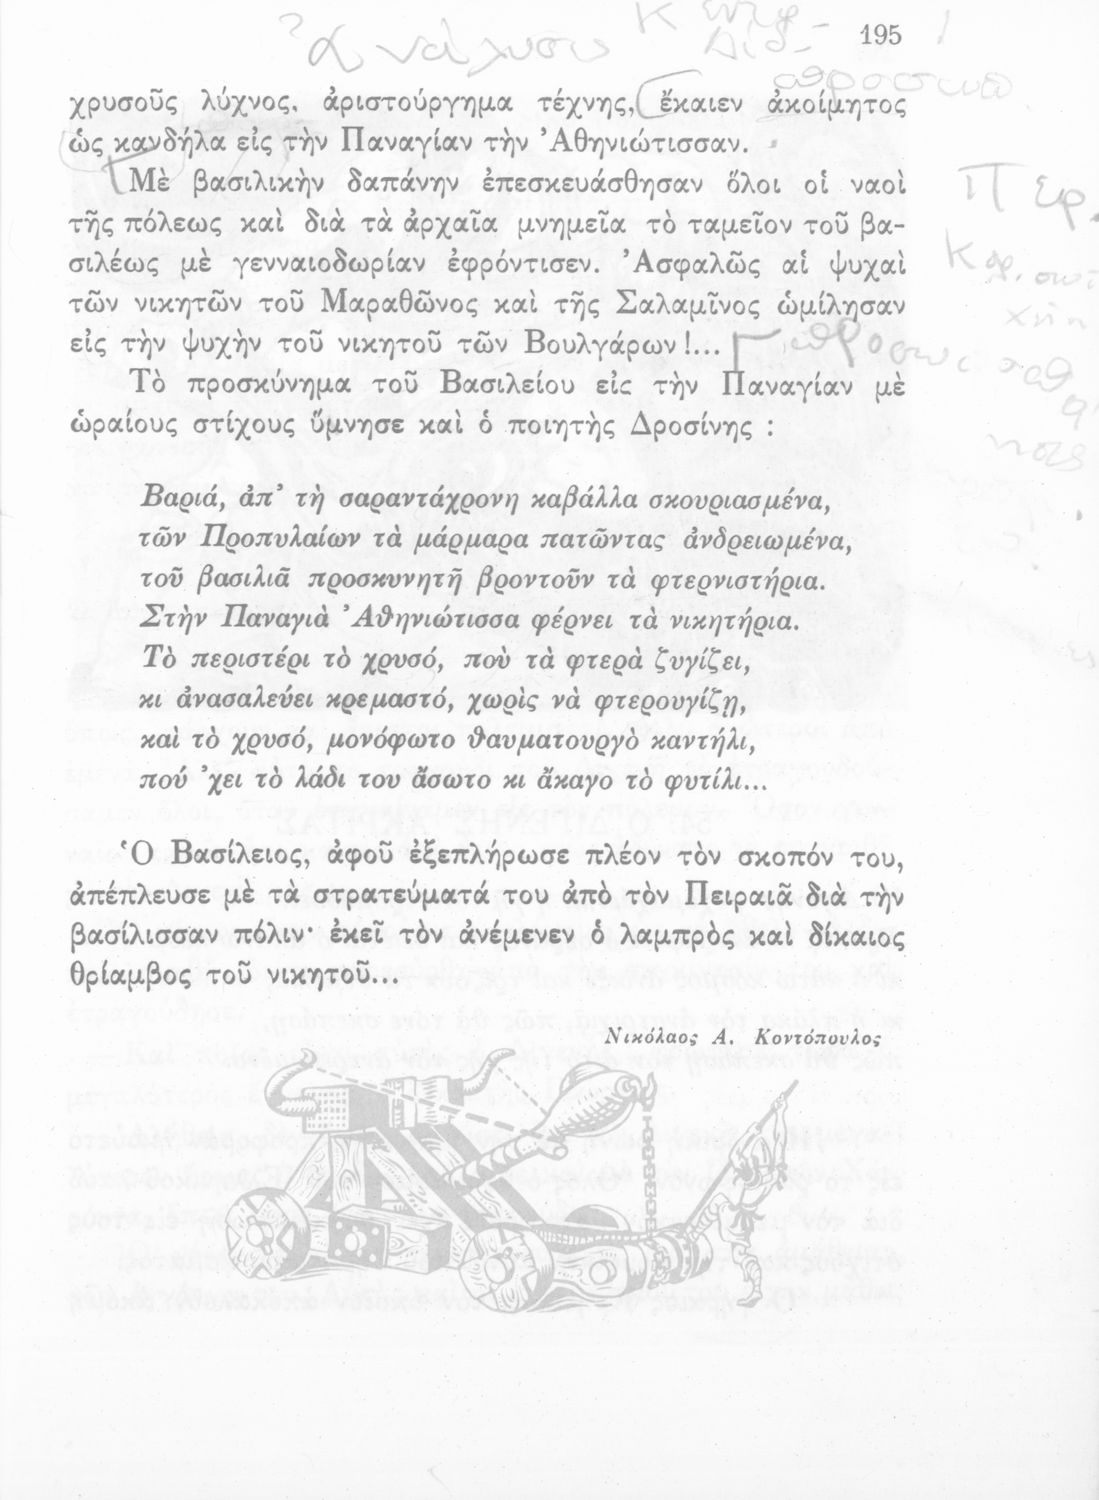 195
χρυσοῦς λύχνος, ἀριστούργημα τέχνης, ἔκαιεν ἀκοίμητος
ὡς κανδήλα εἰς τὴν Παναγίαν τὴν Ἀθηνιώτισσαν.
Μὲ βασιλικὴν δαπάνην ἐπεσκευάσθησαν ὅλοι οἱ ναοὶ
τῆς πόλεως καὶ διὰ τὰ ἀρχαῖα μνημεῖα τὸ ταμεῖον τοῦ βα-
σιλέως μὲ γενναιοδωρίαν ἐφρόντισεν. Ἀσφαλῶς αἱ ψυχαὶ
τῶν νικητῶν τοῦ Μαραθῶνος καὶ τῆς Σαλαμῖνος ὡμίλησαν
εἰς τὴν ψυχὴν τοῦ νικητοῦ τῶν Βουλγάρων!...
Τὸ προσκύνημα τοῦ Βασιλείου εἰς τὴν Παναγίαν μὲ
ὡραίους στίχους ὕμνησε καὶ ὁ ποιητὴς Δροσίνης :
Βαριά, ἀπ’ τὴ σαραντάχρονη καβάλλα σκουριασμένα,
τῶν Προπυλαίων τὰ μάρμαρα πατῶντας ἀνδρειωμένα,
τοῦ βασιλιᾶ προσκυνητῆ βροντοῦν τὰ φτερνιστήρια.
Στὴν Παναγιὰ Ἀθηνιώτισσα φέρνει τὰ νικητήρια.
Τὸ περιστέρι τὸ χρυσό, ποὺ τὰ φτερὰ ζυγίζει,
κι ἀνασαλεύει κρεμαστό, χωρὶς νὰ φτερουγίζῃ,
καὶ τὸ χρυσό, μονόφωτο θαυματουργὸ καντήλι,
πού ’χει τὸ λάδι του ἄσωτο κι ἄκαγο τὸ φυτίλι...
Ὁ Βασίλειος, ἀφοῦ ἐξεπλήρωσε πλέον τὸν σκοπόν του,
ἀπέπλευσε μὲ τὰ στρατεύματά του ἀπὸ τὸν Πειραιᾶ διὰ τὴν
βασίλισσαν πόλιν· ἐκεῖ τὸν ἀνέμενεν ὁ λαμπρὸς καὶ δίκαιος
θρίαμβος τοῦ νικητοῦ...
Νικόλαος Α. Κοντόπουλος